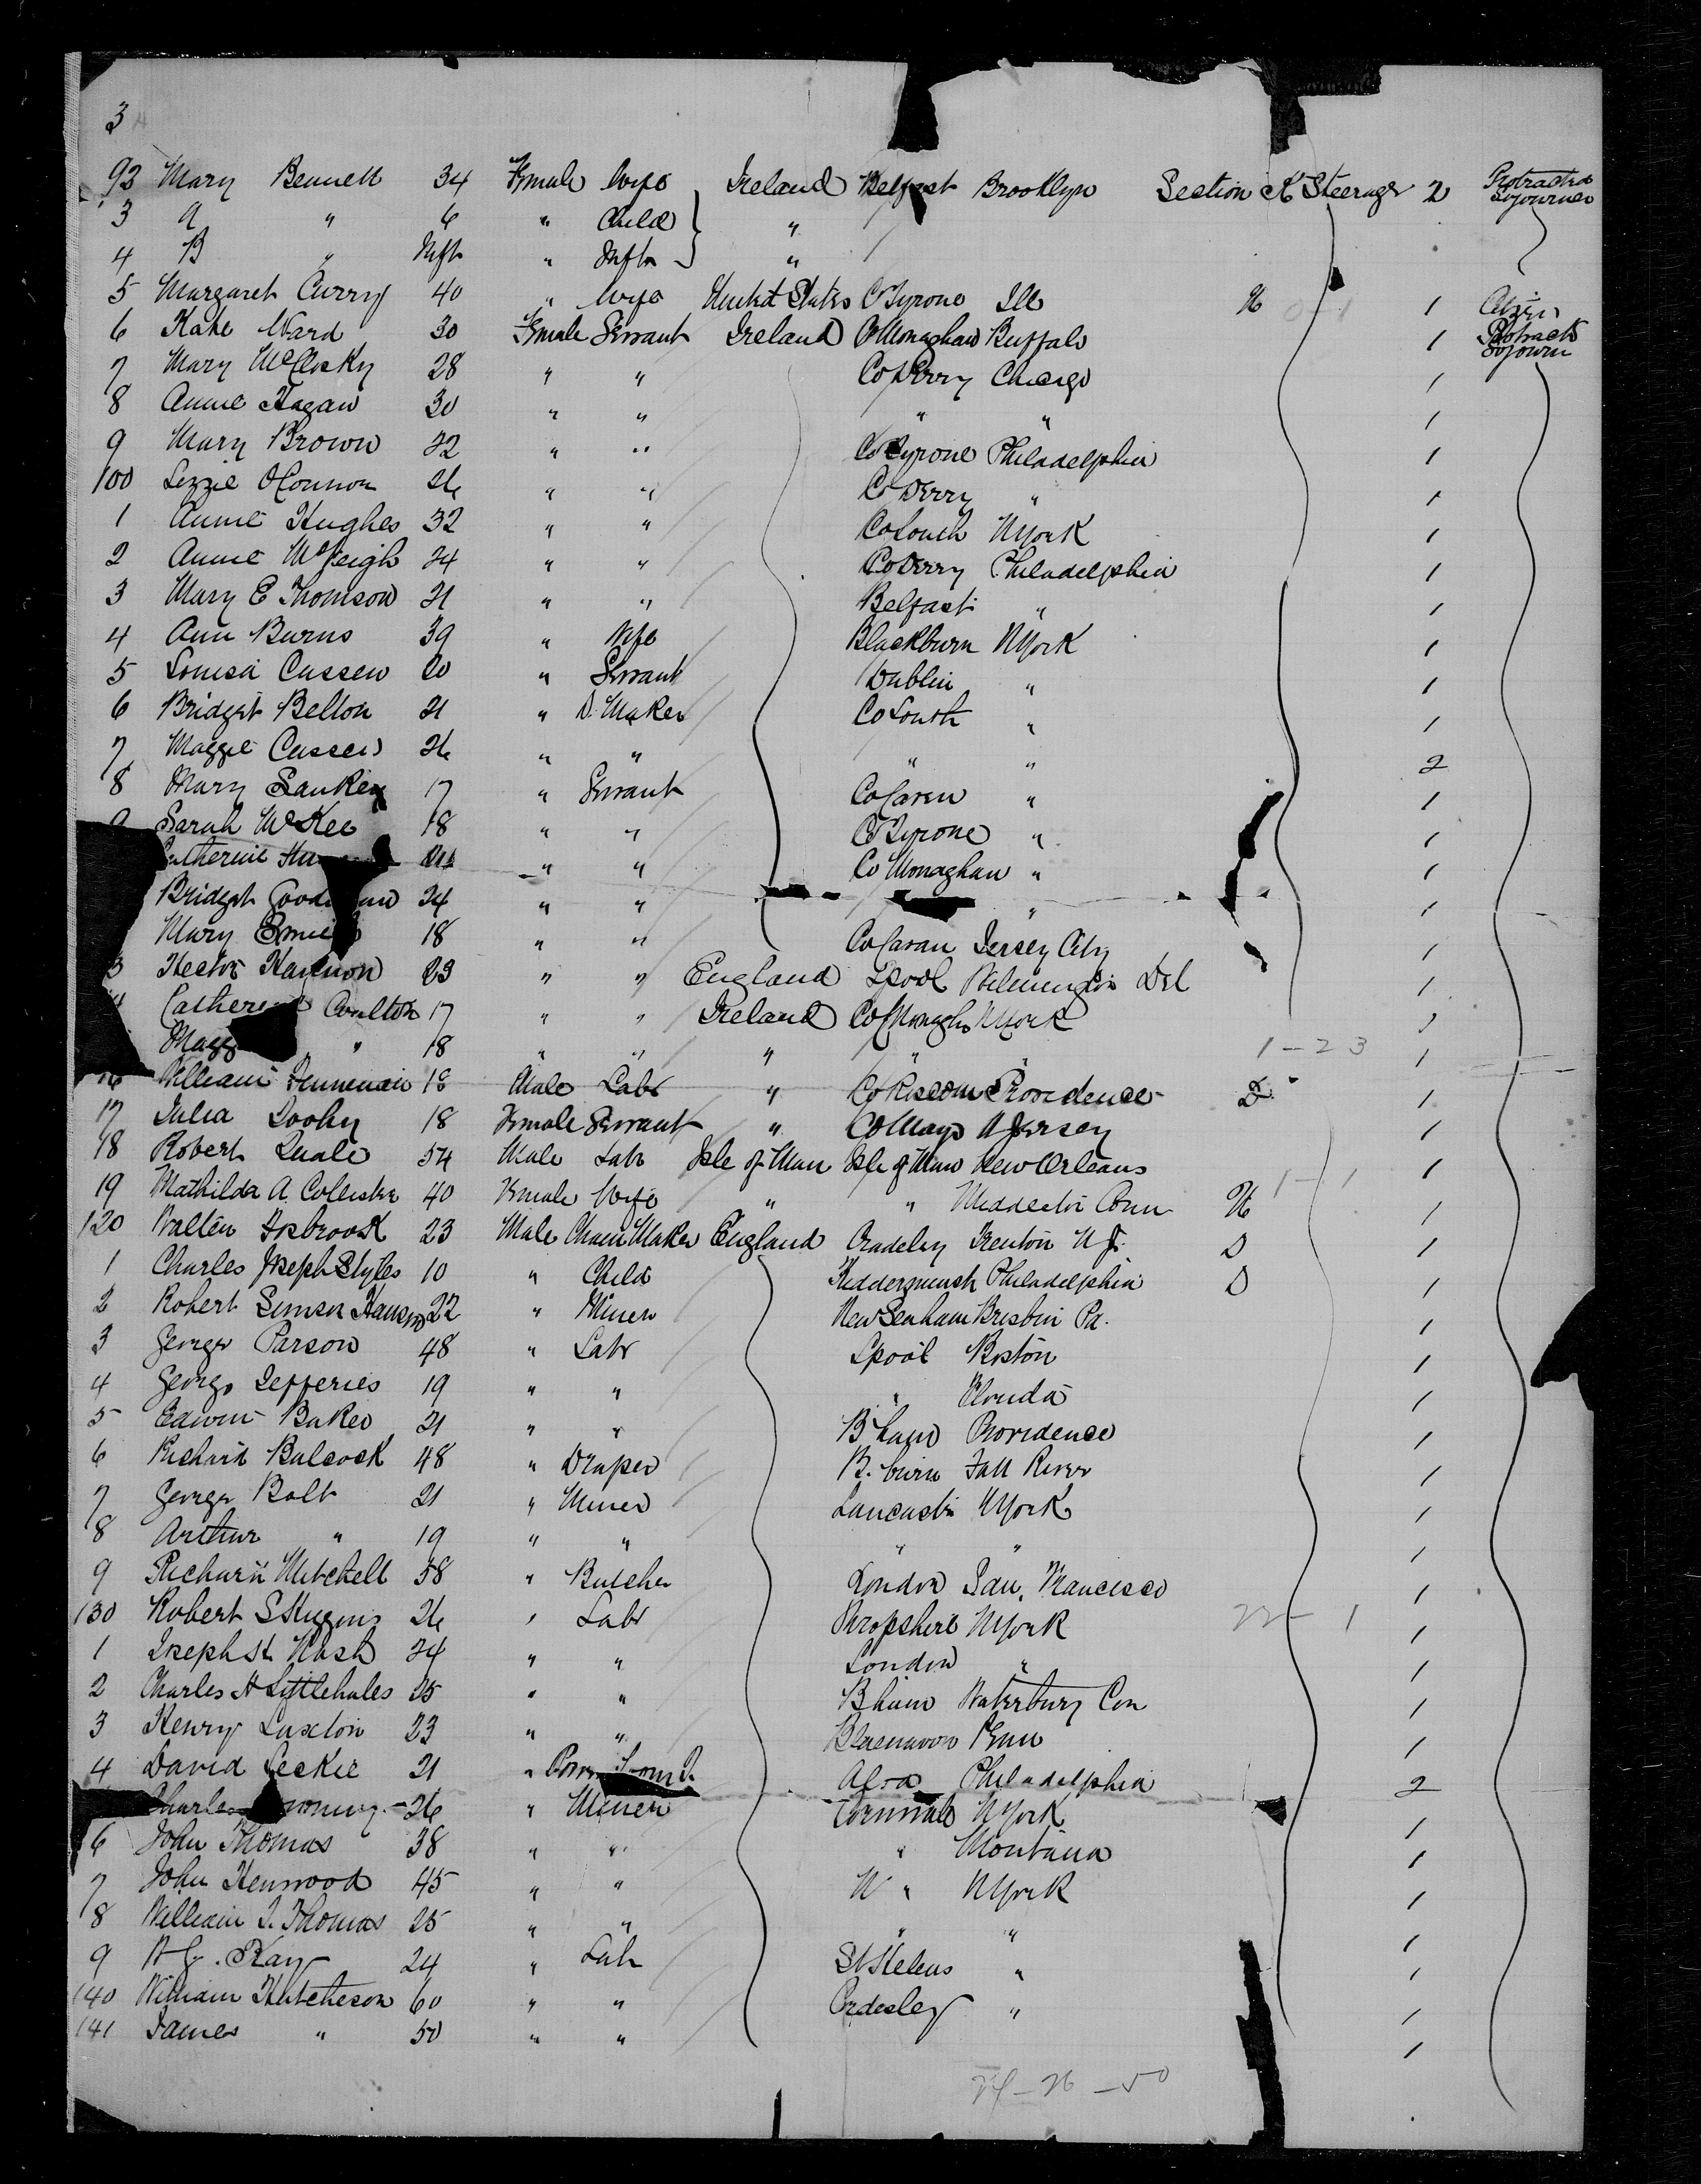 3
92 Mary Bennett 34 Female Wife Ireland Belfast Brooklyn Section K Steerage 2 Protracted Sojourner
3 A " 6 " Child "
4 B " Inft " Inft "
5 Margaret Curry 40 " Wife United States Co Tyrone Ill 1 Citizen
6 Kate Ward 30 Female Servant Ireland Co Monaghan Buffalo 1 Protract Sojourn
7 Mary McClosky 28 " " Co Derry Chicago 1
8 Annie Hagan 30 " " " " 1
9 Mary Brown 22 " " Co Tyrone Philadelphia 1
100 Lizzie OConnor 26 " " Co Derry " 1
1 Annie Hughes 32 " " Co Louth NYork 1
2 Annie McVeigh 24 " " Co Derry Philadelphia 1
3 Mary E Thomson 21 " " Belfast " 1
4 Ann Burns 39 " Wife Blackburn NYork 1
5 Louisa Cassen 20 " Servant Dublin " 1
6 Bridget Bellon 21 " D. Maker Co Louth " 1
7 Maggie Cassen 26 " " " " 2
8 Mary Sankey 17 " Servant Co Cavan " 1
9 Sarah McKee 18 " " Co Tyrone " 1
Catherine " " Co Monaghan " 1
Bridget 24 " " " 1
Mary 18 " " Co Cavan Jersey City 1
3 Hector Harrison 23 " " England Lpool Wilmington Del 1
4 Catherine Coulton 17 " " Ireland Co Monaghn NYork 1
" 18 " " " " " 1-23 1
16 William 18 Male Labr " Co Roscom Providence D 1
17 Julia Doohy 18 Female Servant " Co Mayo N Jersey 1
18 Robert Quale 54 Male Labr Isle of Man Isle of Man New Orleans 1
19 Mathilda A. Collister 40 Female Wife " " Middleton Conn 1-1 1
120 Walter Hsbrook 23 Male Chain Maker England Cradeley Trenton N J. D 1
1 Charles Joseph Styles 10 " Child Philadelphia D 1
2 Robert 22 " Miner New Senham Brisbin Pa. 1
3 George Parson 48 " Labr Lpool Boston 1
4 George Jefferies 19 " " " Florida 1
5 Edwin Baker 21 " " B'ham Providence 1
6 Richard Balcock 48 " Draper B. burn Fall River 1
7 George Bolt 21 " Miner Lancaster NYork 1
8 Arthur " 19 " " " " 1
9 Richard Mitchell 58 " Butcher London San. Francisco 1
130 Robert S Huggins 26 " Labr Shropshire NYork 22-1 1
1 Joseph St Nash 24 " " London " 1
2 Charles H Littlehales 25 " " Bham Waterbury Con 1
3 Henry Laxton 23 " " Blaenavon Penn 1
4 David Leckie 21 " Philadelphia 2
Charles 26 " Miner Cornwall NYork 1
6 John Thomas 38 " " " Montana 1
7 John Kenwood 45 " " N " NYork 1
8 William J. Thomas 25 " " " " 1
9 Kay 24 " Labr St Helens " 1
140 William Hutcheson 60 " " Cradesley " 1
141 James " 50 " " 1
24-26-50